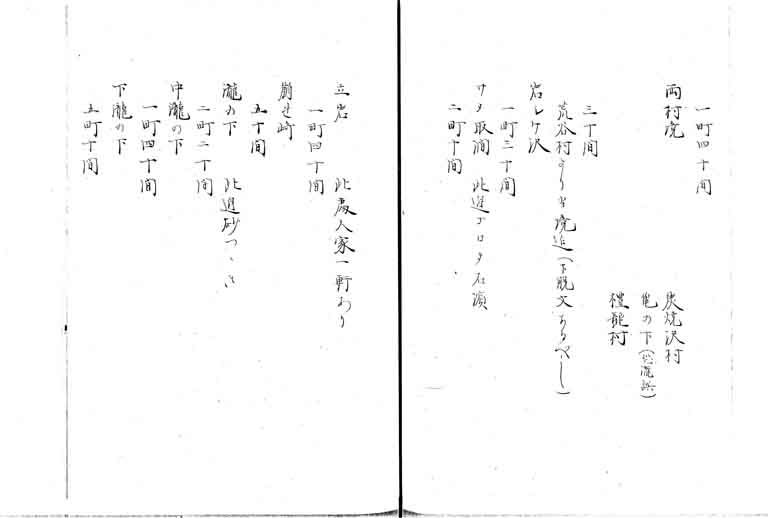 一町四十間
両村境
炭焼沢村
滝の下
礼髭村
三十間
荒谷村より當境迄(下脱文あるべし)
岩しケ沢
一町三十間
サメ取澗 此辺ゴロタ石濱
二町十間
立岩 此處人家一軒あり
一町四十間
崩せ崎
五十間
瀧の下 此辺砂つゝき
二町二十間
中瀧の下
一町四十間
下瀧の下
五町十間